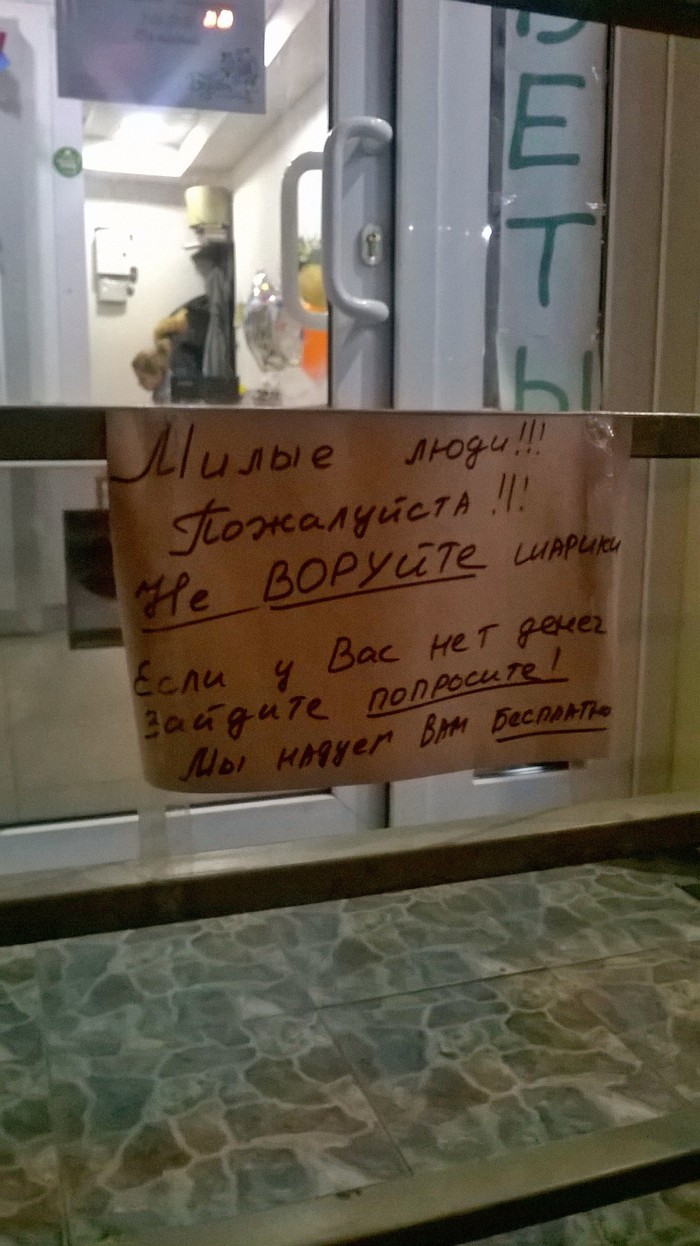 ВЕТЫ
Милые люди!!!
Пожалуйста!!!
Не ВОРУйТЕ шарики
Если у Вас нет денег
Зайдите попросите!
Мы надуем Вам бесплатно